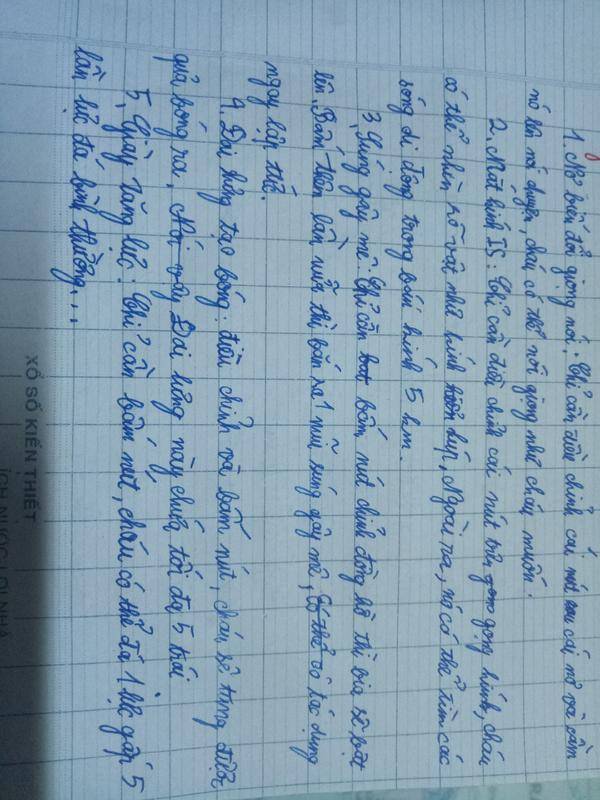 1. Nơ biến đổi giọng nói: Chỉ cần điều chỉnh cái nút sau cái nơ và cầm
nó lên nói chuyện, cháu có thể nói giọng như cháu muốn.
2. Mắt kính IS: Chỉ cần điều chỉnh cái nút trên gọng kính, cháu
có thể nhìn rõ vật như kính hiển. Ngoài ra, nó có thể tìm các
sóng di động trong bán kính 5 km.
3. Súng gây mê: Chỉ cần bấm nút chỉnh đồng hồ thì bia sẽ bật
lên. Bấm thêm lần nữa thì bắn ra 1 mũi súng gây mê, có tác dụng
ngay lập tức.
4. Dai lưng tạo bóng: điều chỉnh và bấm nút, cháu sẽ tung được
quả bóng ra. Dai lưng này chứa tối đa 5 trái
5. Giày tăng lực: Chỉ cần bấm nút, cháu có thể đá 1 lực gấp 5
lần lúc đá bình thường...
XỔ SỐ KIẾN THIẾT
ÍCH NƯỚC LỢI NHÀ